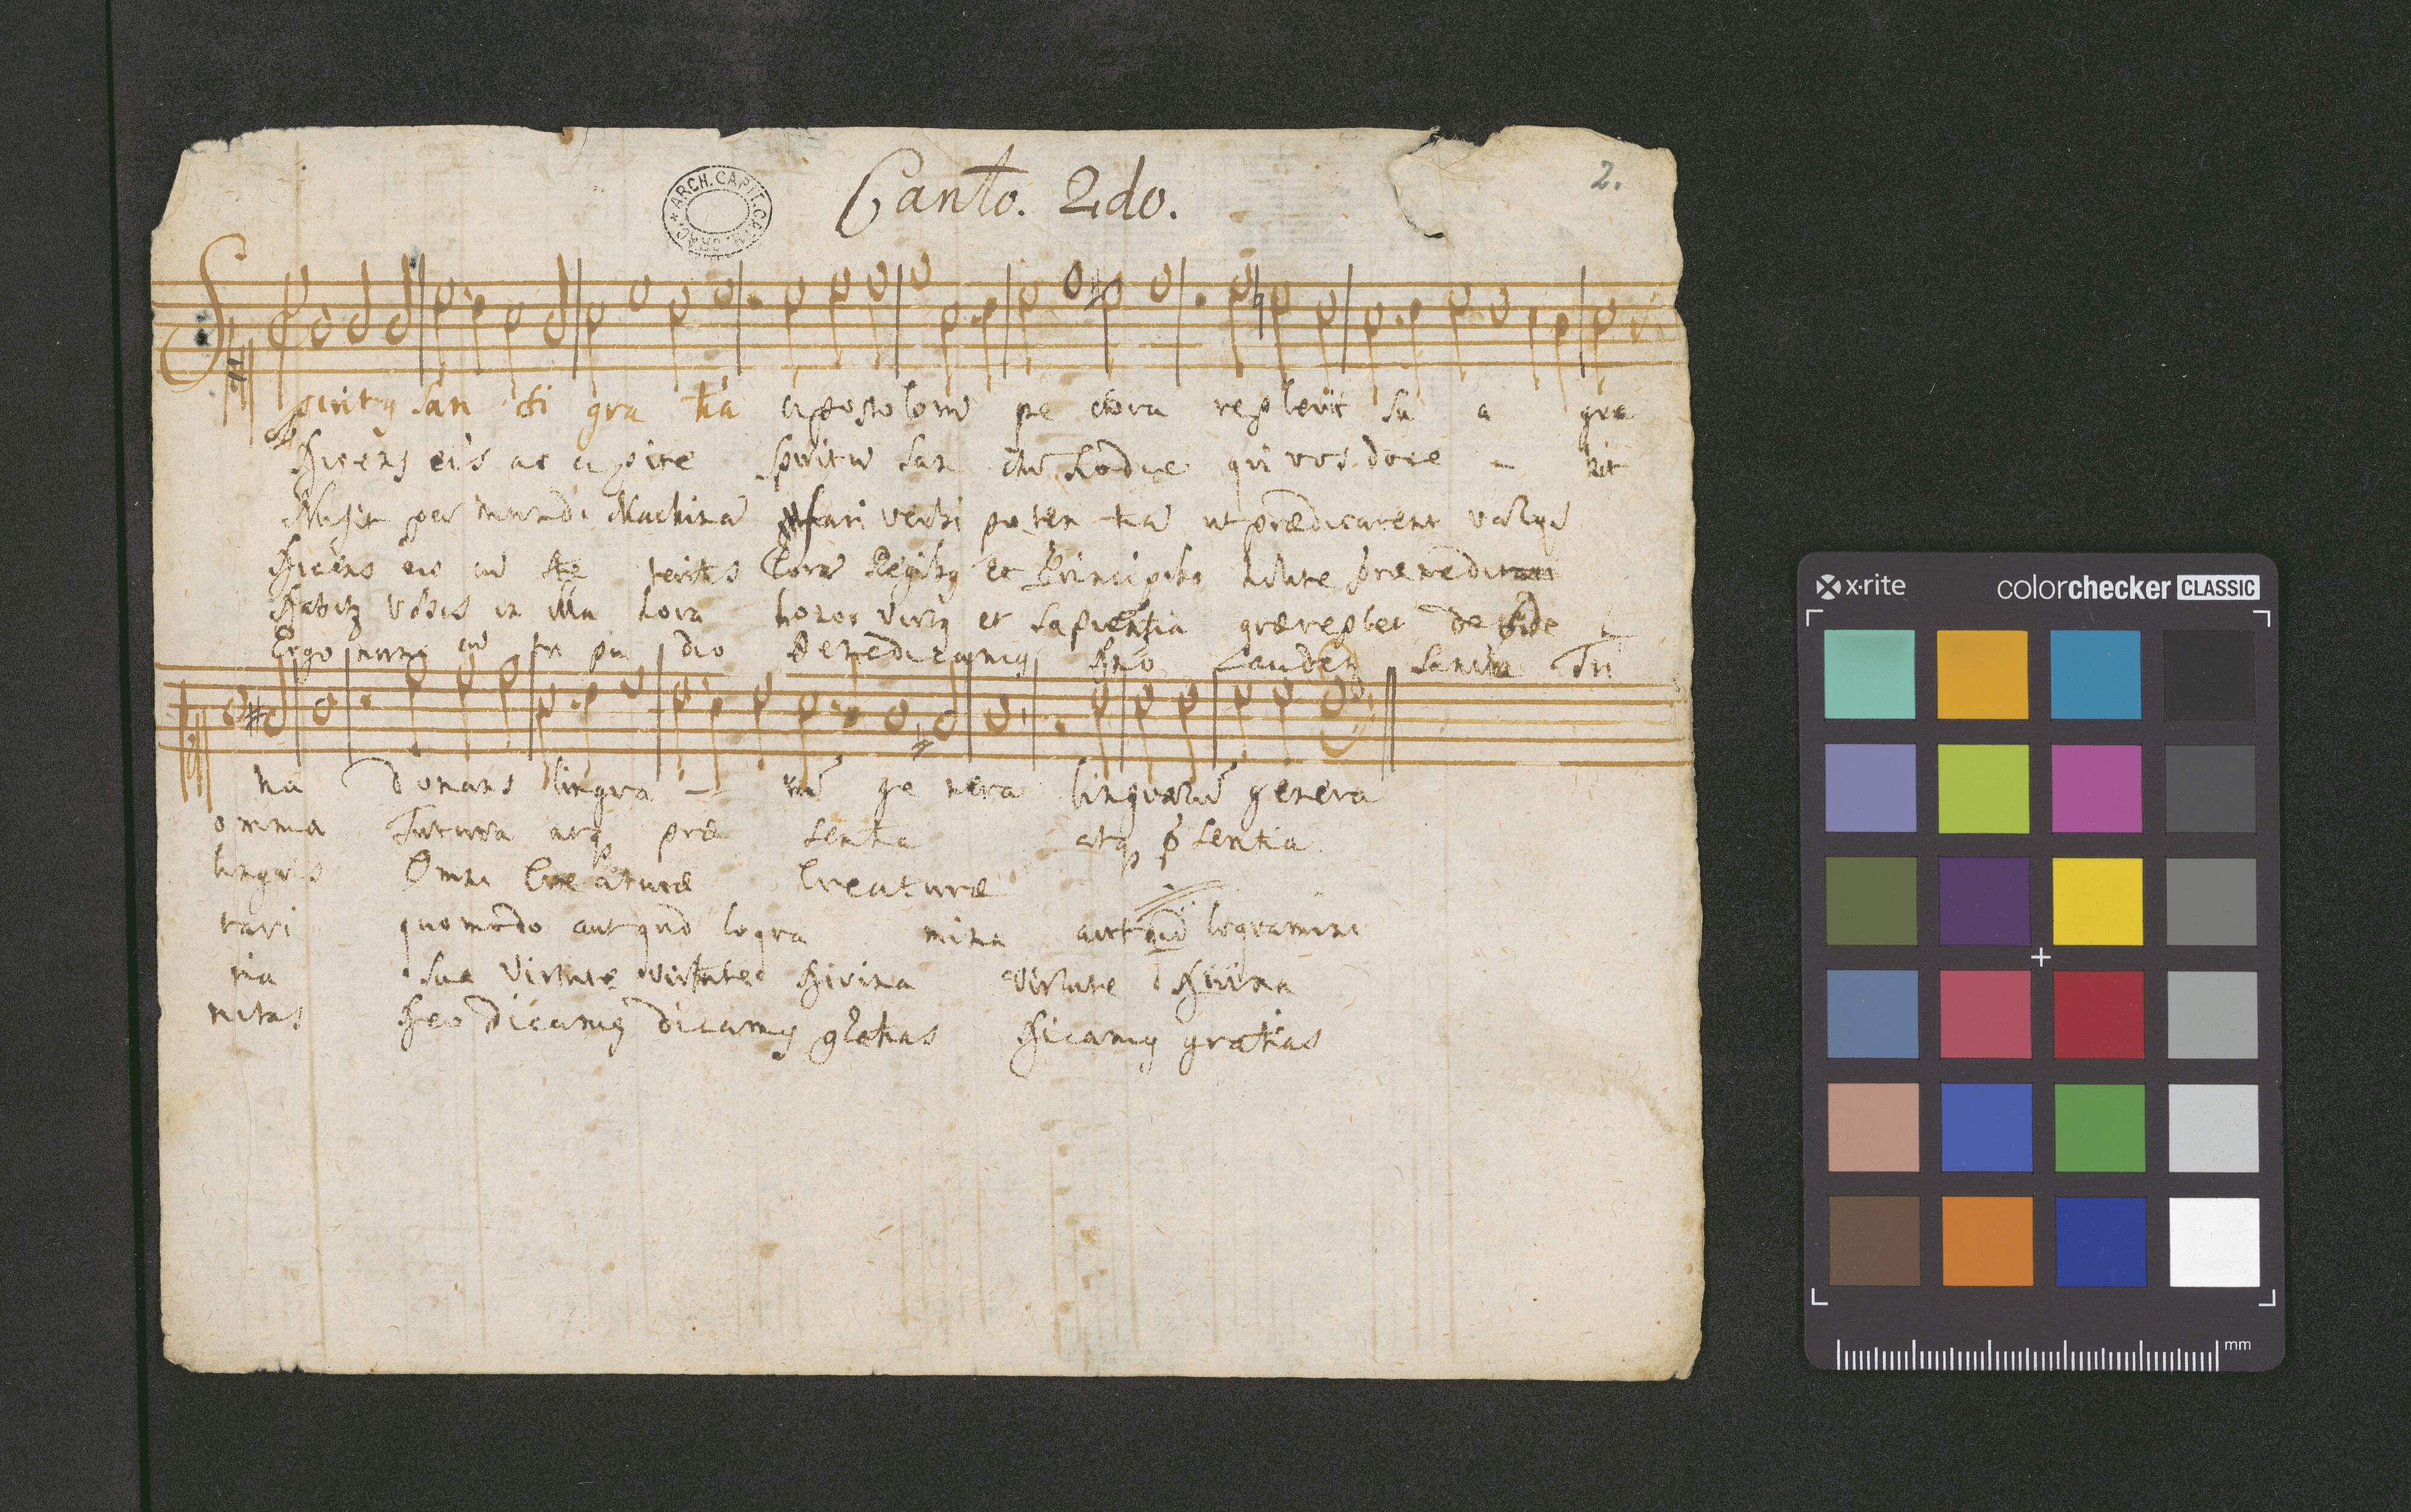 Canto. 2do.
2.
ARCH. CAPIT. CATH. CRAC.
Spiritus San cti gra tia apostolorū pe ctora replevit su a gra
Dicens eis ac ci pite Spiritū San ctū hodie qui vos doce - bit
Misit per mundi Machinā fari verbi poten tiā ut prædicarent
Dicens eis cū ste teritis Corā Regibus et Principibs nolite præmedi
Dabitz vobis in illa hora honor virtus et Sapientia de
Ergo nunc cū tri pu dio Benedicamus Dno Laudet Sancta Tri
tia donans lingva - rū ge nera lingvarū genera
omnia futura atq præ sentia atq p̄sentia
lingvis Omni Creaturæ Creaturæ
tari quomodo aut quid loqva mini aut quid loqvamini
ria Sua Virtute virtute Divina Virtute Divina
nitas Deo dicamus dicamus gratias Dicamus gratias
x·rite colorchecker CLASSIC
mm